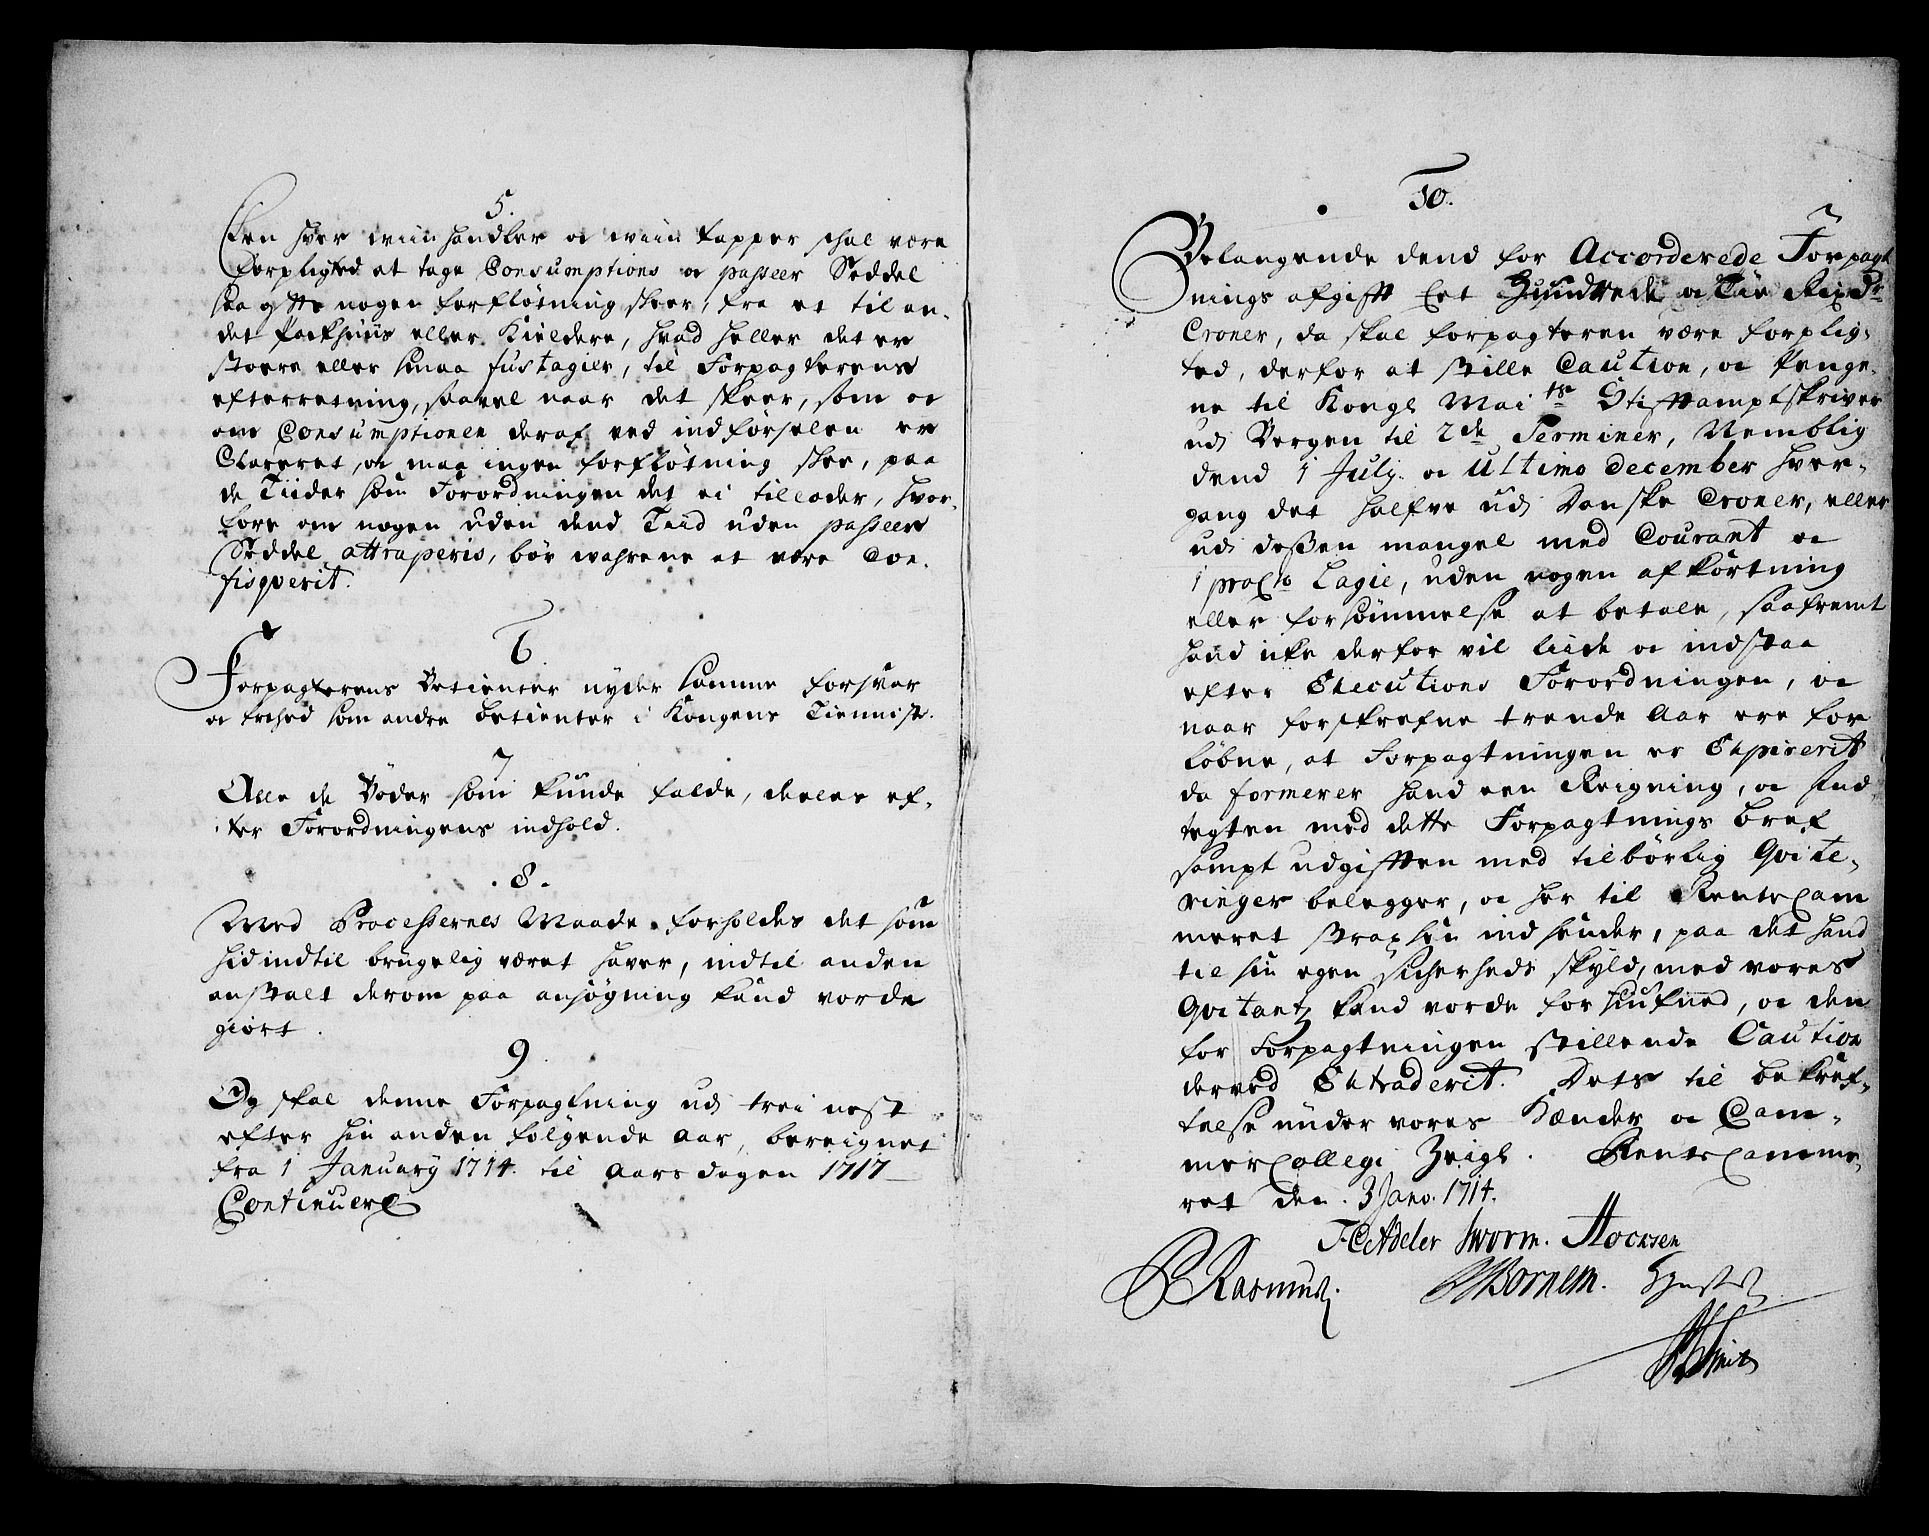 5.
Een hver wiin handler oc wiin tapper schal være
forpligted at tage Consumptions oc passeer Seddel
saa ofte nogen forfløtning skeer, fra et til an-
det Packhuus eller Kieldere, hvad heller det er
stoere eller smaa fustagier, til Forpagterens
efterretning, saavel naar det skeer, som oc
om Consumptionen deraf ved indførselen er
Clareret, oc maa ingen forfløtning skee, paa
de Tiider som Forordningen det ei tillader, hvor-
fore om nogen uden dend Tiid uden passeer
Seddel attraperis, bør wahrene at være Con-
fisqverit.
6
Forpagterens Betienter nyder samme forsvar
oc frehed som andre betienter i Kongens Tienniste.
7
Alle de Bøder som kunde falde, deeles ef-
ter Forordningens indhold.
8.
Med Processernes Maade forholdes det som
hidindtil brugelig været haver, indtil anden
anstalt derom paa ansøgning kand vorde
giort.
9
Og skal denne Forpagtning udi trei nest
efter hin anden følgende aar, bereignet
fra 1 January 1714. til aarsdagen 1717
Continuere
10.
Belangende dend for Accorderede Forpagt
nings afgifft Eet Hundrede oc Tie Rixdr
Croner, da skal forpagteren være forplig-
ted, derfor at stille Caution, oc Penge-
ne til Kongl Maits Stifftamptskriver
udi Bergen til 2de Terminer, Nemblig
dend 1 July. oc Ultimo december hver-
gang det halfve udi Danske Croner, eller
udi dessen mangel med Courant oc
1 proCto Lagie, uden nogen afkortning
eller forsømmelse at betale, saafremt
hand icke derfor vil liide oc indstaa
efter Executions Forordningen, oc
naar forskrefne trende Aar ere for
løbne, at Forpagtningen er Expirerit
da formerer hand een Reigning, oc Ind
tegten med dette Forpagtnings bref
sampt udgifften med tilbørlig Qvite-
ringer belegger, oc her til RenteCam
meret strax hen indsender, paa det hand
til sin egen sicherheds skyld, med vores
Qvitantz kand vorde forsiufned, oc den
for Forpagtningen stillende Caution
derved Extraderit. Dets til bekref-
telse under vores Hænder oc Cam-
merCollegi Zeigl. RenteCamme-
ret den. 3 Janv. 1714.
F C Adeler Worm. Stocksen
Rasmus. Bornem.